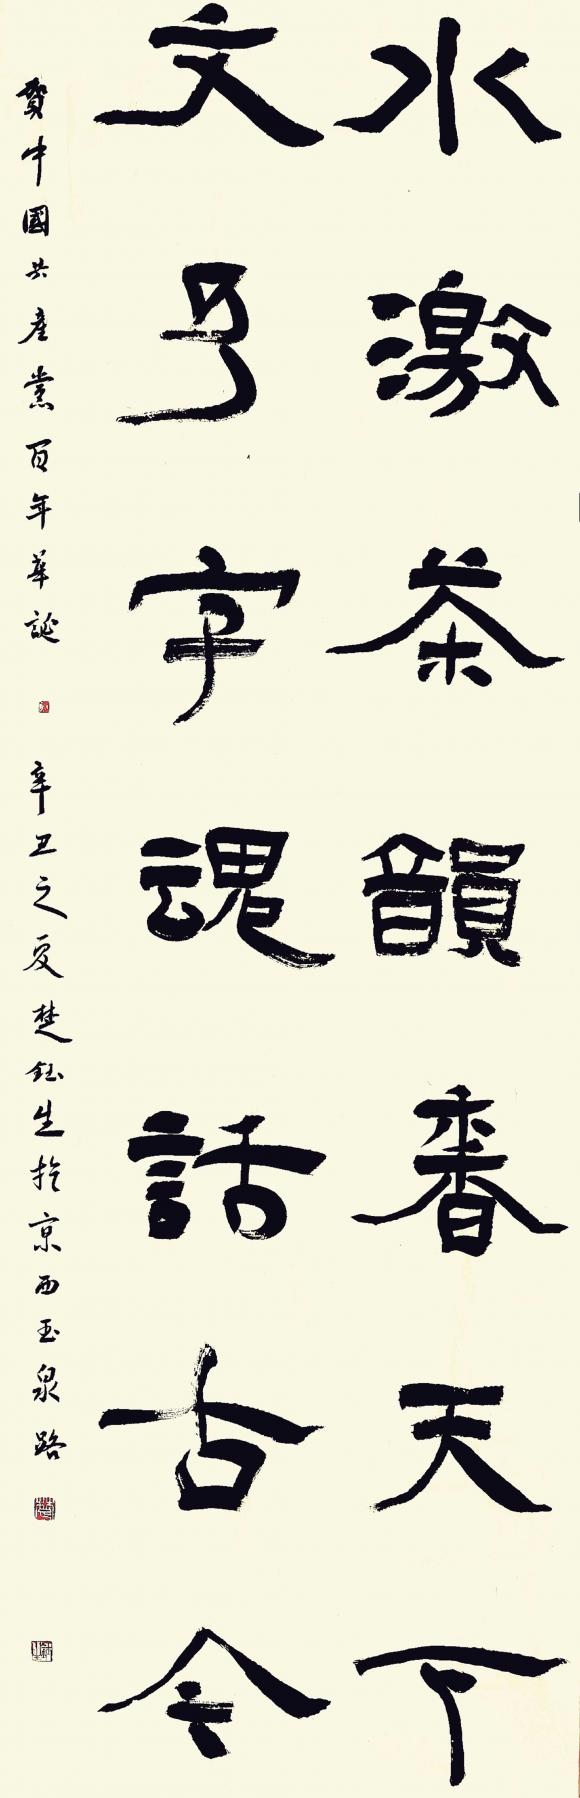 水激茶韻香天下
文以字魂話古今
賀中國共產黨百年華誕
辛丑之夏楚鈺生於京西玉泉路